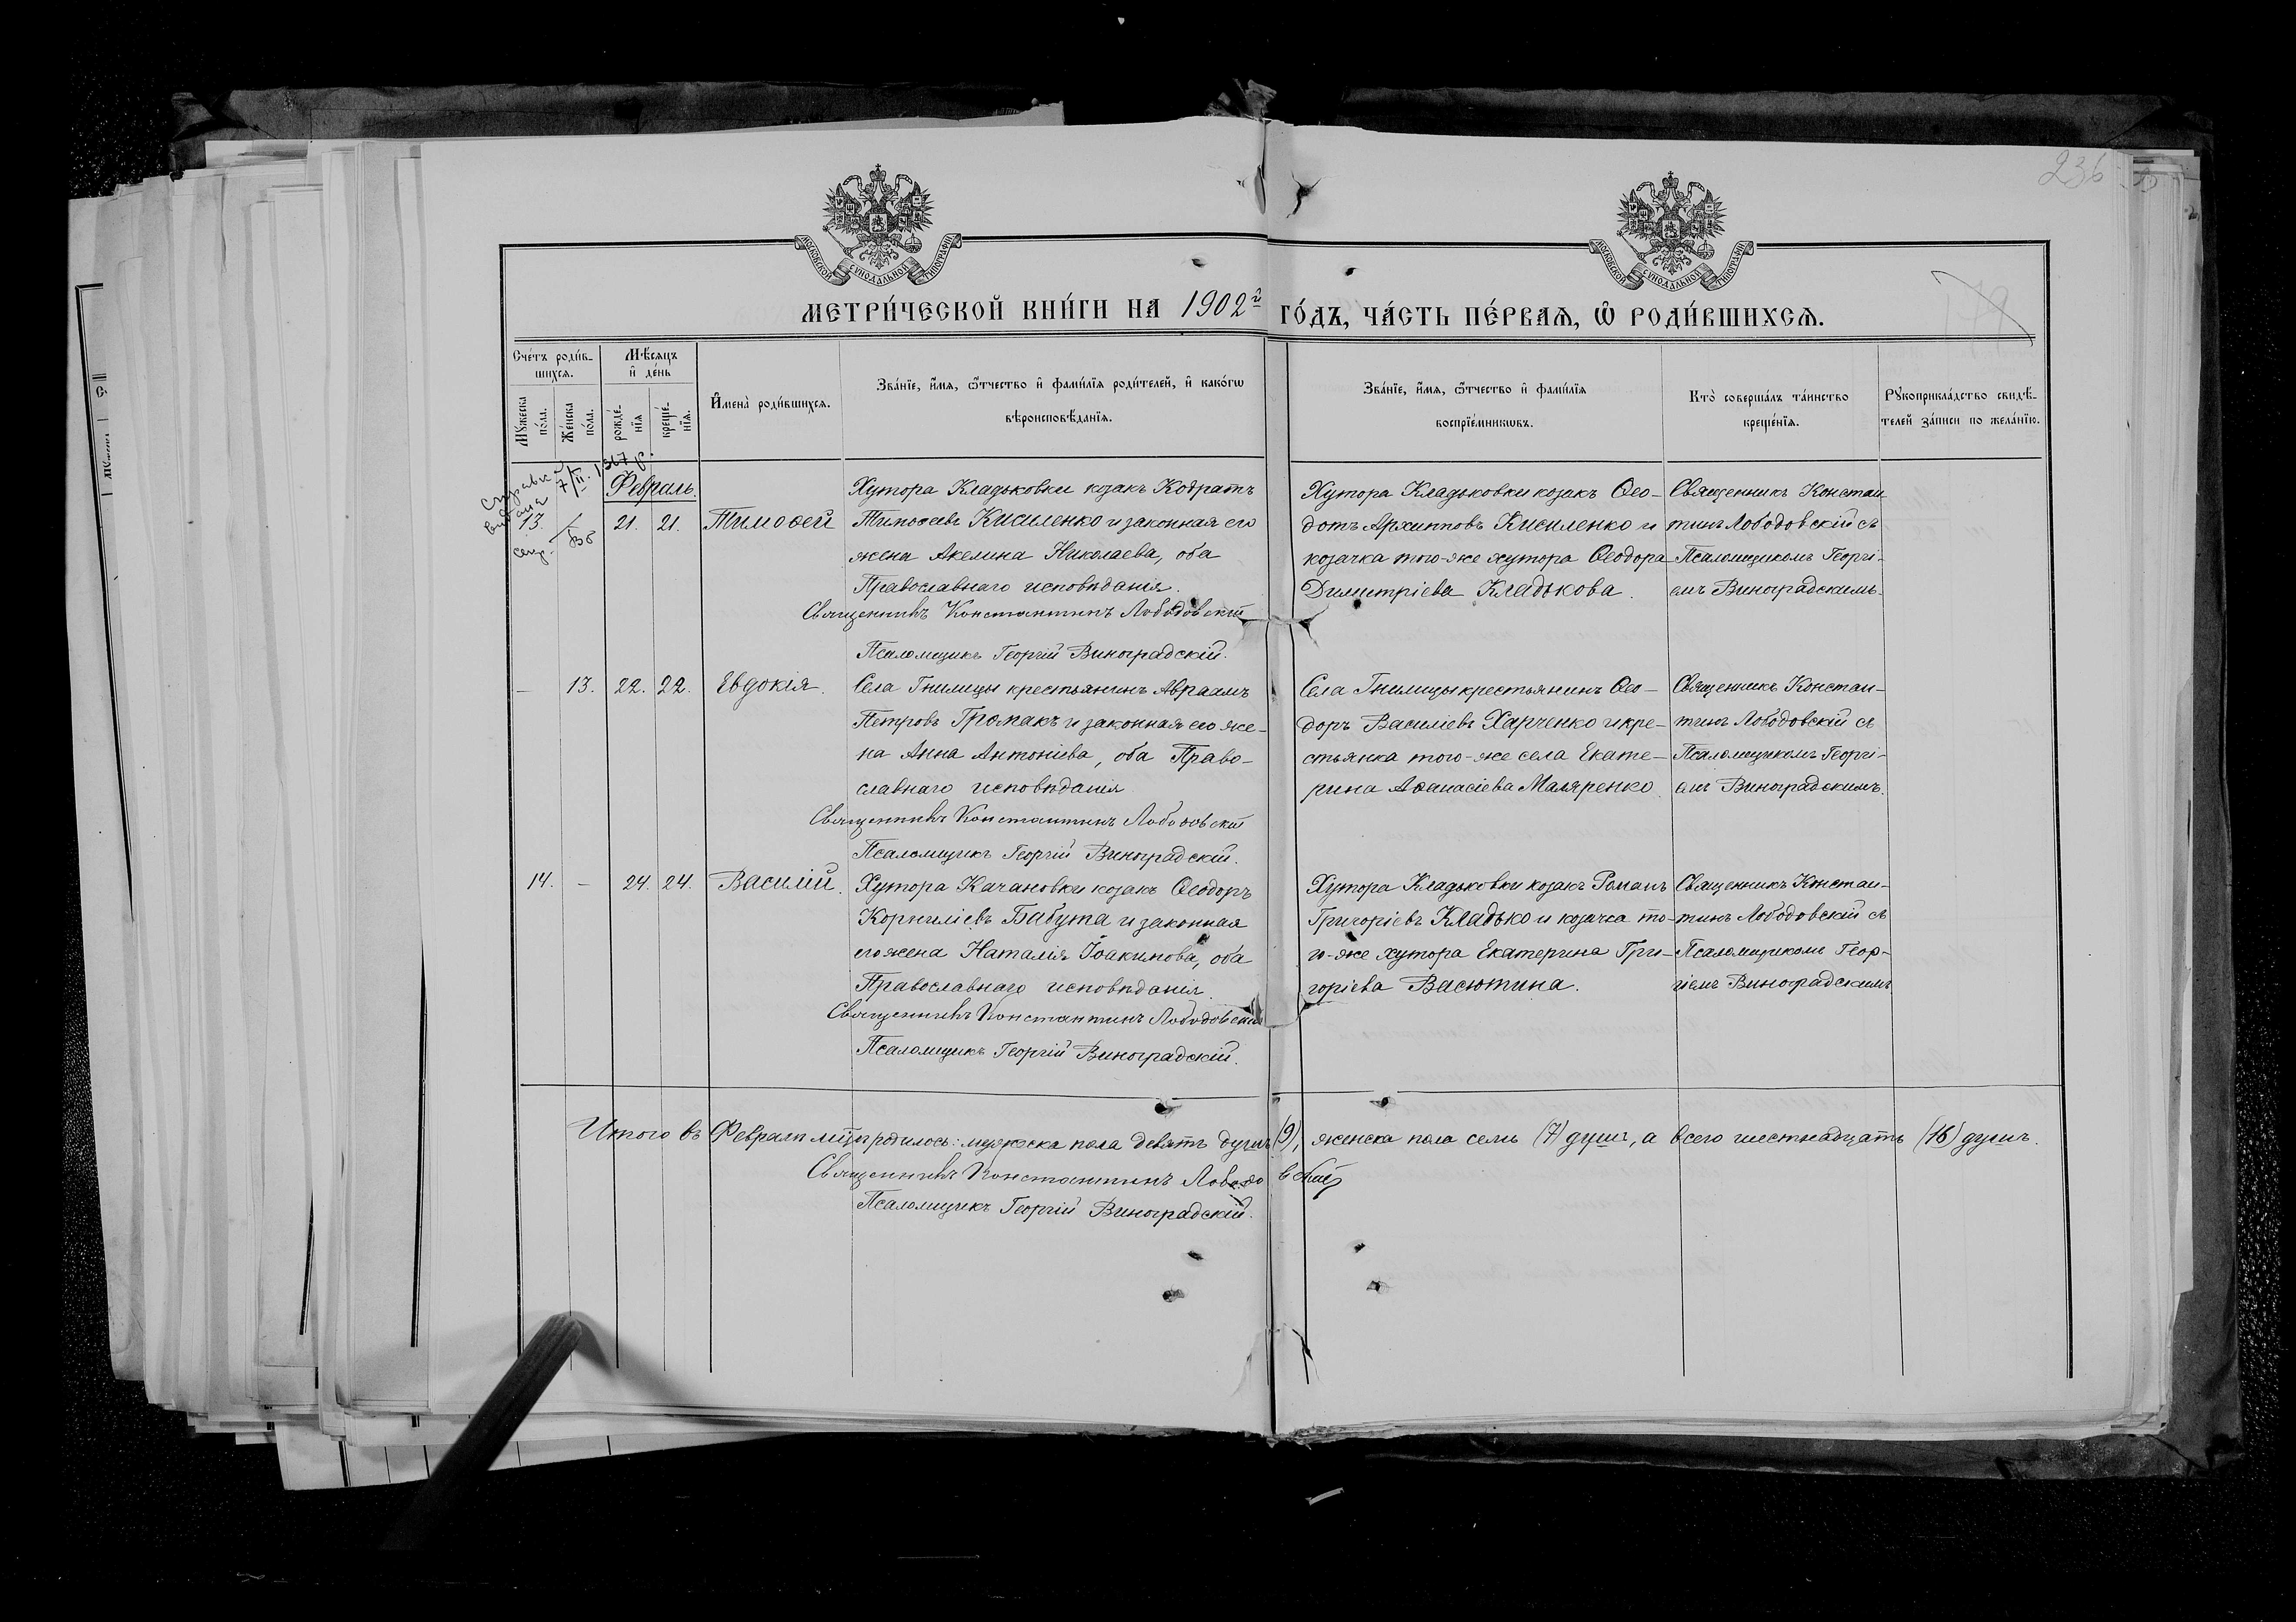 236
МОСКОВСКОЙ СУНОДАЛЬНОЙ ТИПОГРАФІИ
МОСКОВСКОЙ СУНОДАЛЬНОЙ ТИПОГРАФІИ
МЕТРИ́ЧЕСКОЙ КНИ́ГИ НА 1902й ГО́ДЪ, ЧА́СТЬ ПЕ́РВАѦ, Ѡ РОДИ́ВШИХСѦ.
Сче́тъ роди́в-
шихсѧ.
Мꙋ́жеска по́ла.
Же́нска по́ла.
Мѣ́сѧцъ и де́нь
рожде́-
нїѧ
креще́-
нїѧ.
И҆мена̀ роди́вшихсѧ.
Зва́нїе, и҆́мѧ, ѻ҆́тчество и҆ фами́лїѧ роди́телей, и҆ како́гѡ
вѣроисповѣ́данїѧ.
Зва́нїе, и҆́мѧ, ѻ҆́тчество и҆ фами́лїѧ
воспрїе́мникѡвъ.
Кто̀ соверша́лъ та́инство
креще́нїѧ.
Рꙋкоприкла́дство свидѣ́-
телей за́писи по жела́нїю.
7/II. 1967 р.
Февраль.
13. 21. 21. Тимоѳей
Хутора Кладьковки козакъ Кодратъ
Тимоѳеевъ Кисиленко и законная его
жена Акелина Николаева, оба
Православнаго исповѣданія.
Священникъ Константинъ Лободовскій
Псаломщикъ Георгій Виноградскій.
Хутора Кладьковки козакъ Ѳео-
дотъ Архипповъ Кисиленко и
козачка того-же хутора Ѳеодора
Димитріева Кладькова.
Священникъ Констан
тинъ Лободовскій съ
Псаломщикомъ Георгі-
емъ Виноградскимъ.
— 13. 22. 22. Евдокія.
Села Гнилицы крестьянинъ Авраамъ
Петровъ Громакъ и законная его же-
на Анна Антоніева, оба Право-
славнаго исповѣданія
Священникъ Константинъ Лободовскій
Псаломщикъ Георгій Виноградскій.
Села Гнилицы крестьянинъ Ѳео-
доръ Василіевъ Харченко и кре-
стьянка того-же села Екате-
рина Аѳанасіева Маляренко.
Священникъ Констан-
тинъ Лободовскій съ
Псаломщикомъ Георгі-
емъ Виноградскимъ.
14. — 24. 24. Василій.
Хутора Качановки козакъ Ѳеодоръ
Корниліевъ Бабута и законная
его жена Наталія Іоакимова, оба
Православнаго исповѣданія.
Священникъ Константинъ Лободовскій
Псаломщикъ Георгій Виноградскій.
Хутора Кладьковки козакъ Романъ
Григоріевъ Кладько и козачка то-
го-же хутора Екатерина Гри-
горіева Васютина.
Священникъ Констан-
тинъ Лободовскій съ
Псаломщикомъ Геор-
гіемъ Виноградскимъ
Итого въ Февралѣ мцѣ родилось: мужеска пола девять душъ (9), женска пола семь (7) душъ, а всего шестнадцать (16) душъ.
Священникъ Константинъ Лободовскій
Псаломщикъ Георгій Виноградскій.